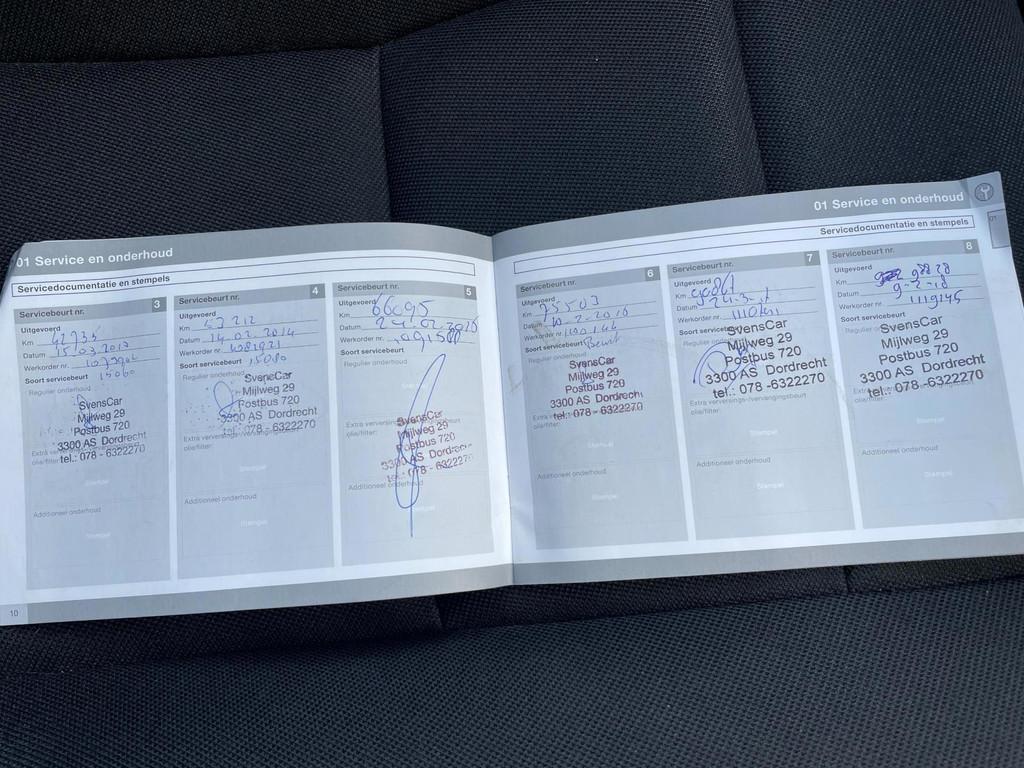 01 Service en onderhoud
Servicedocumentatie en stempels
Servicebeurt nr. 3
Uitgevoerd
Km 42735
Datum 15.03.2013
Werkorder nr.
Soort servicebeurt 15000
Regulier onderhoud
SvensCar
Mijlweg 29
Postbus 720
3300 AS Dordrecht
tel.: 078 - 6322270
Extra verversings-/vervangingsbeurt
olie/filter:
Stempel
Additioneel onderhoud
Stempel
10
Servicebeurt nr. 4
Uitgevoerd
Km 57212
Datum 14.02.2014
Werkorder nr. 1081921
Soort servicebeurt
Regulier onderhoud
SvensCar
Mijlweg 29
Postbus 720
3300 AS Dordrecht
tel.: 078 - 6322270
Extra verversings-/vervangingsbeurt
olie/filter:
Stempel
Additioneel onderhoud
Stempel
Servicebeurt nr. 5
Uitgevoerd
Km 66095
Datum
Werkorder nr.
Soort servicebeurt
Regulier onderhoud
SvensCar
Mijlweg 29
Postbus 720
3300 AS Dordrecht
tel.: 078 - 6322270
olie/filter:
Additioneel onderhoud
Stempel
01 Service en onderhoud
Servicedocumentatie en stempels
01
Servicebeurt nr. 6
Uitgevoerd
Km 75503
Datum 10-2-2016
Werkorder nr.
Soort servicebeurt Beurt
Regulier onderhoud
SvensCar
Mijlweg 29
Postbus 720
3300 AS Dordrecht
tel.: 078 - 6322270
Extra verversings-/vervangingsbeurt
olie/filter:
Stempel
Additioneel onderhoud
Stempel
Servicebeurt nr. 7
Uitgevoerd
Km
Datum
Werkorder nr.
Soort servicebeurt
Regulier onderhoud
SvensCar
Mijlweg 29
Postbus 720
3300 AS Dordrecht
tel.: 078 -6322270
Extra verversings-/vervangingsbeurt
olie/filter:
Stempel
Additioneel onderhoud
Stempel
Servicebeurt nr. 8
Uitgevoerd
Km 98828
Datum 9-2-18
Werkorder nr. 1119145
Regulier onderhoud
SvensCar
Mijlweg 29
Postbus 720
3300 AS Dordrecht
tel.: 078 -6322270
olie/filter:
Stempel
Additioneel onderhoud
Stempel